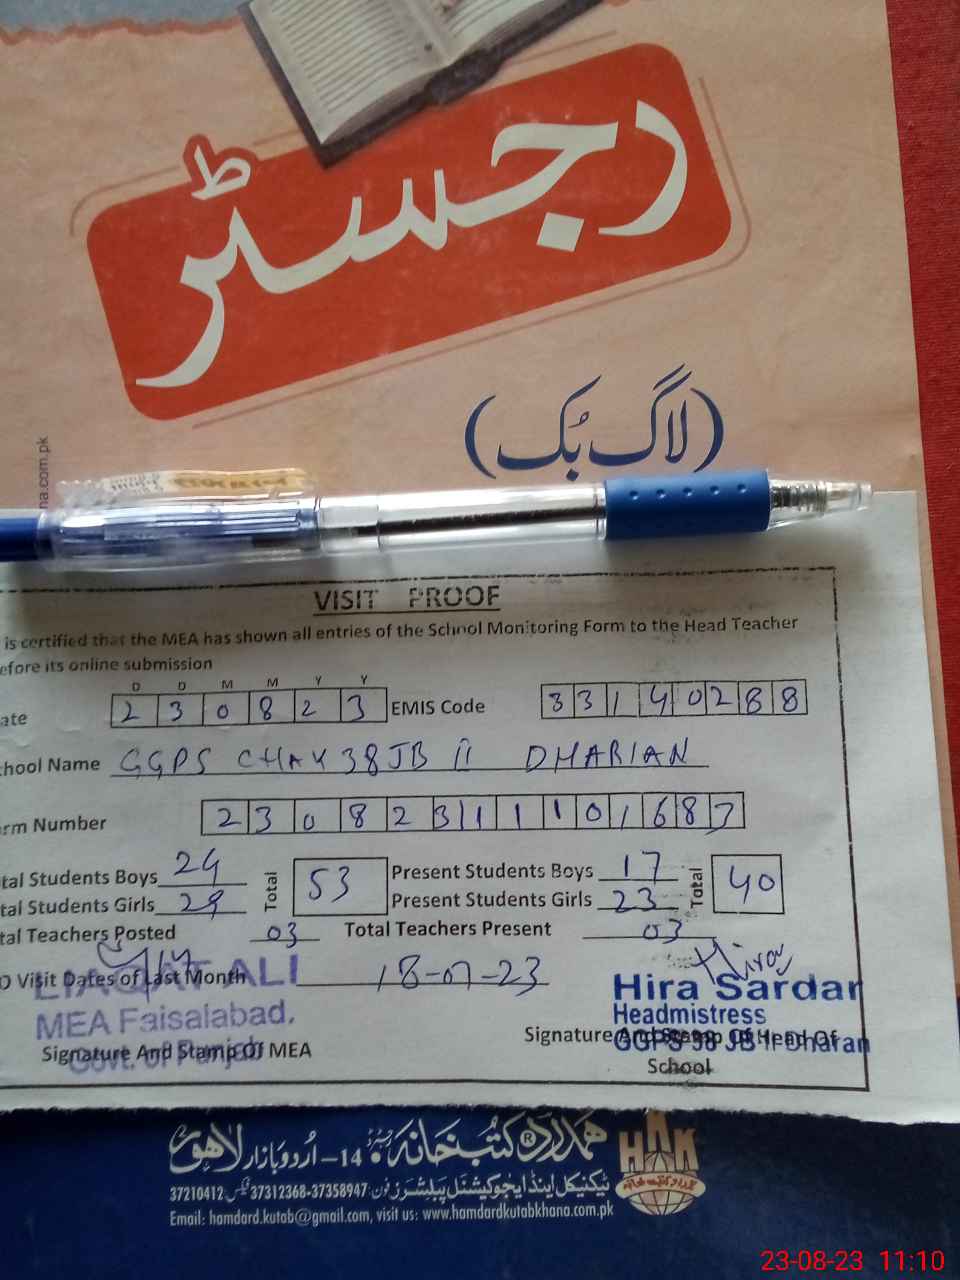 رجسٹر
(لاگ بُک)
na.com.pk
VISIT PROOF
is certified that the MEA has shown all entries of the School Monitoring Form to the Head Teacher
efore its online submission
D D M M Y Y
ate 2 3 0 8 2 3 EMIS Code 3 3 1 4 0 2 8 8
chool Name GGPS CHAK 38 JB II DHARIAN
rm Number 2 3 0 8 2 3 1 1 1 0 1 6 8 3
tal Students Boys 24 Total 53 Present Students Boys 17 Total 40
tal Students Girls 29 Present Students Girls 23
tal Teachers Posted 03 Total Teachers Present 03
O Visit Dates of Last Month 18-07-23
LIAQAT ALI
MEA Faisalabad.
Govt. of Punjab
Signature And Stamp Of MEA
Hira
Hira Sardar
Headmistress
GGPS 38 JB II Dharan
Signature And Stamp Of Head Of
School
ہمدرد کتب خانہ ® 14-اُردو بازار لاہور
ٹیکنیکل اینڈ ایجوکیشنل پبلیشرز فون: 37358947-37312368 فیکس 37210412
Email: hamdard.kutab@gmail.com, visit us: www.hamdardkutabkhana.com.pk
HAK
23-08-23 11:10